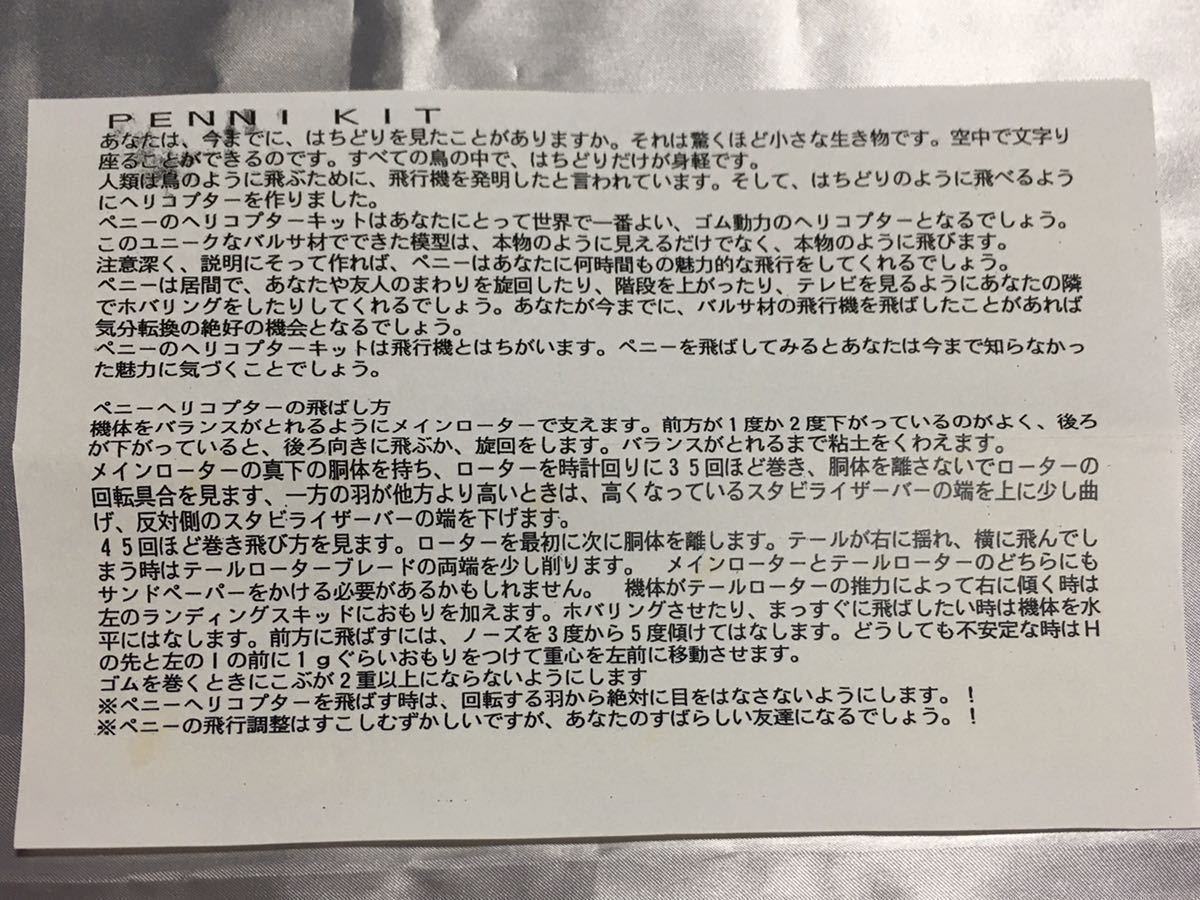 PENNI KIT
あなたは、今までに、はちどりを見たことがありますか。それは驚くほど小さな生き物です。空中で文字り
座ることができるのです。すべての鳥の中で、はちどりだけが身軽です。
人類は鳥のように飛ぶために、飛行機を発明したと言われています。そして、はちどりのように飛べるよう
にヘリコプターを作りました。
ペニーのヘリコプターキットはあなたにとって世界で一番よい、ゴム動力のヘリコプターとなるでしょう。
このユニークなバルサ材でできた模型は、本物のように見えるだけでなく、本物のように飛びます。
注意深く、説明にそって作れば、ペニーはあなたに何時間もの魅力的な飛行をしてくれるでしょう。
ペニーは居間で、あなたや友人のまわりを旋回したり、階段を上がったり、テレビを見るようにあなたの隣
でホバリングをしたりしてくれるでしょう。あなたが今までに、バルサ材の飛行機を飛ばしたことがあれば
気分転換の絶好の機会となるでしょう。
ペニーのヘリコプターキットは飛行機とはちがいます。ペニーを飛ばしてみるとあなたは今まで知らなかっ
た魅力に気づくことでしょう。
ペニーヘリコプターの飛ばし方
機体をバランスがとれるようにメインローターで支えます。前方が1度か2度下がっているのがよく、後ろ
が下がっていると、後ろ向きに飛ぶか、旋回をします。バランスがとれるまで粘土をくわえます。
メインローターの真下の胴体を持ち、ローターを時計回りに35回ほど巻き、胴体を離さないでローターの
回転具合を見ます、一方の羽が他方より高いときは、高くなっているスタビライザーバーの端を上に少し曲
げ、反対側のスタビライザーバーの端を下げます。
45回ほど巻き飛び方を見ます。ローターを最初に次に胴体を離します。テールが右に揺れ、横に飛んでし
まう時はテールローターブレードの両端を少し削ります。 メインローターとテールローターのどちらにも
サンドペーパーをかける必要があるかもしれません。 機体がテールローターの推力によって右に傾く時は
左のランディングスキッドにおもりを加えます。ホバリングさせたり、まっすぐに飛ばしたい時は機体を水
平にはなします。前方に飛ばすには、ノーズを3度から5度傾けてはなします。どうしても不安定な時はH
の先と左のIの前に1gぐらいおもりをつけて重心を左前に移動させます。
ゴムを巻くときにこぶが2重以上にならないようにします
※ペニーヘリコプターを飛ばす時は、回転する羽から絶対に目をはなさないようにします。!
※ペニーの飛行調整はすこしむずかしいですが、あなたのすばらしい友達になるでしょう。!